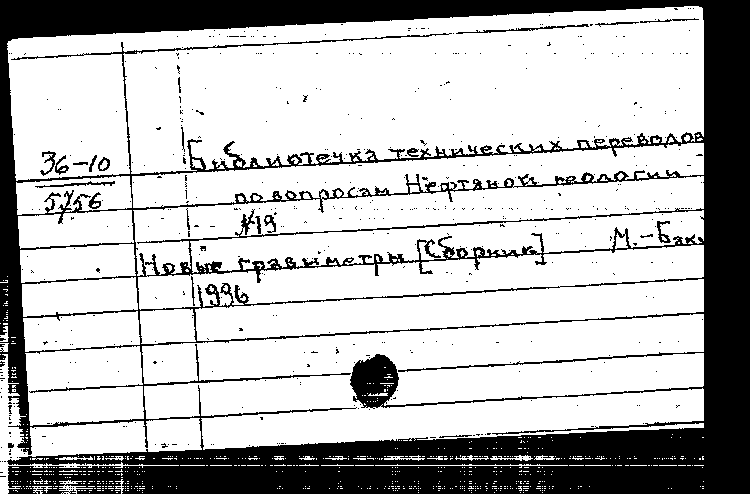 36-10
5756
Библиотечка технических переводов
по вопросам Нефтяной геологии
№19
Новые гравиметры [Сборник] М.-Баку
1936